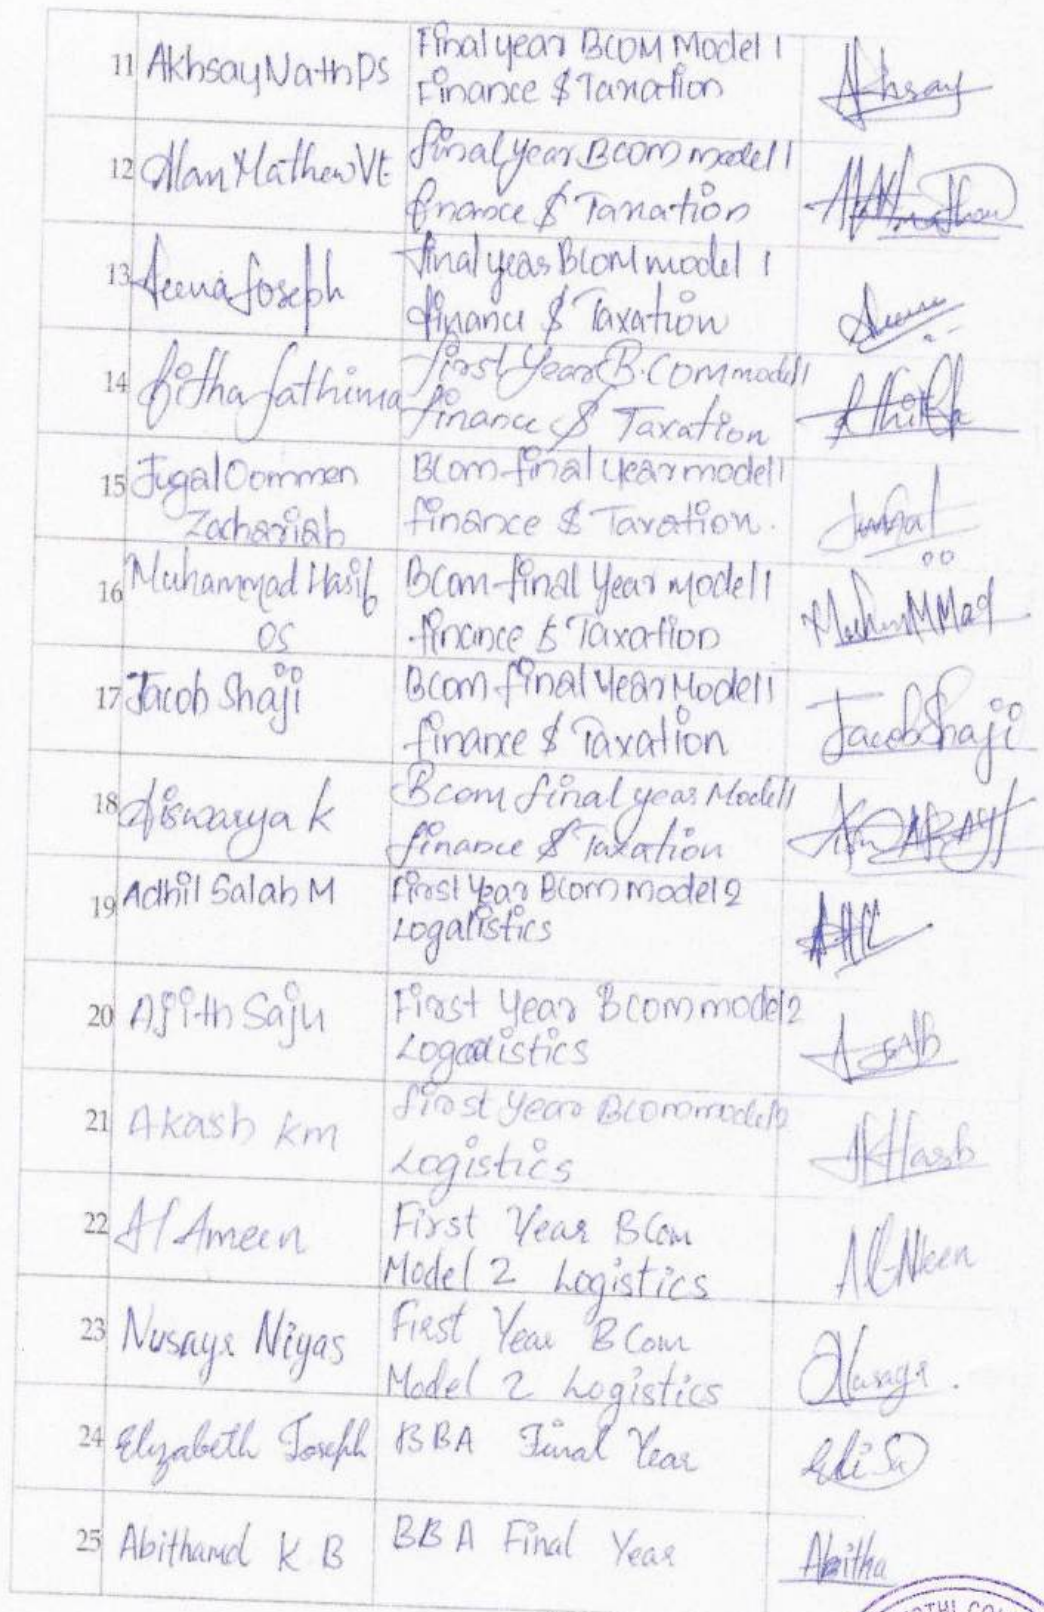 11 Akhsay Nath Ps Final year BCOM Model 1 Akhsay
Finance $ Taxation
12 Allan Mathew Vt final year BCOM model 1
finance $ Taxation
13 Aeena Joseph final year BCOM model 1
finance $ Taxation
14 fathima first Year B.COM model 1
finance $ Taxation
15 Jugal Oommen BCom final year model 1
Zachariah finance $ Taxation.
16 Muhammad Hasif BCom final Year Model 1
OS finance $ Taxation
17 Jacob Shaji BCom final Year Model 1 Jacob Shaji
finance $ Taxation
18 Aiswarya K Bcom final year Model 1
finance $ Taxation
19 Adhil Salah M First Year BCom model 2
Logalistics
20 Ajith Saju First Year BCOM model 2
Logadistics
21 Akash km first Year BCom model 2 AKHash
Logistics
22 Al Ameen First Year BCom
Model 2 Logistics
23 Nusayr Niyas First Year BCom Nusayr.
Model 2 Logistics
24 Elyzabeth Joseph BBA Final Year
25 Abithamol K B BBA Final Year Abitha